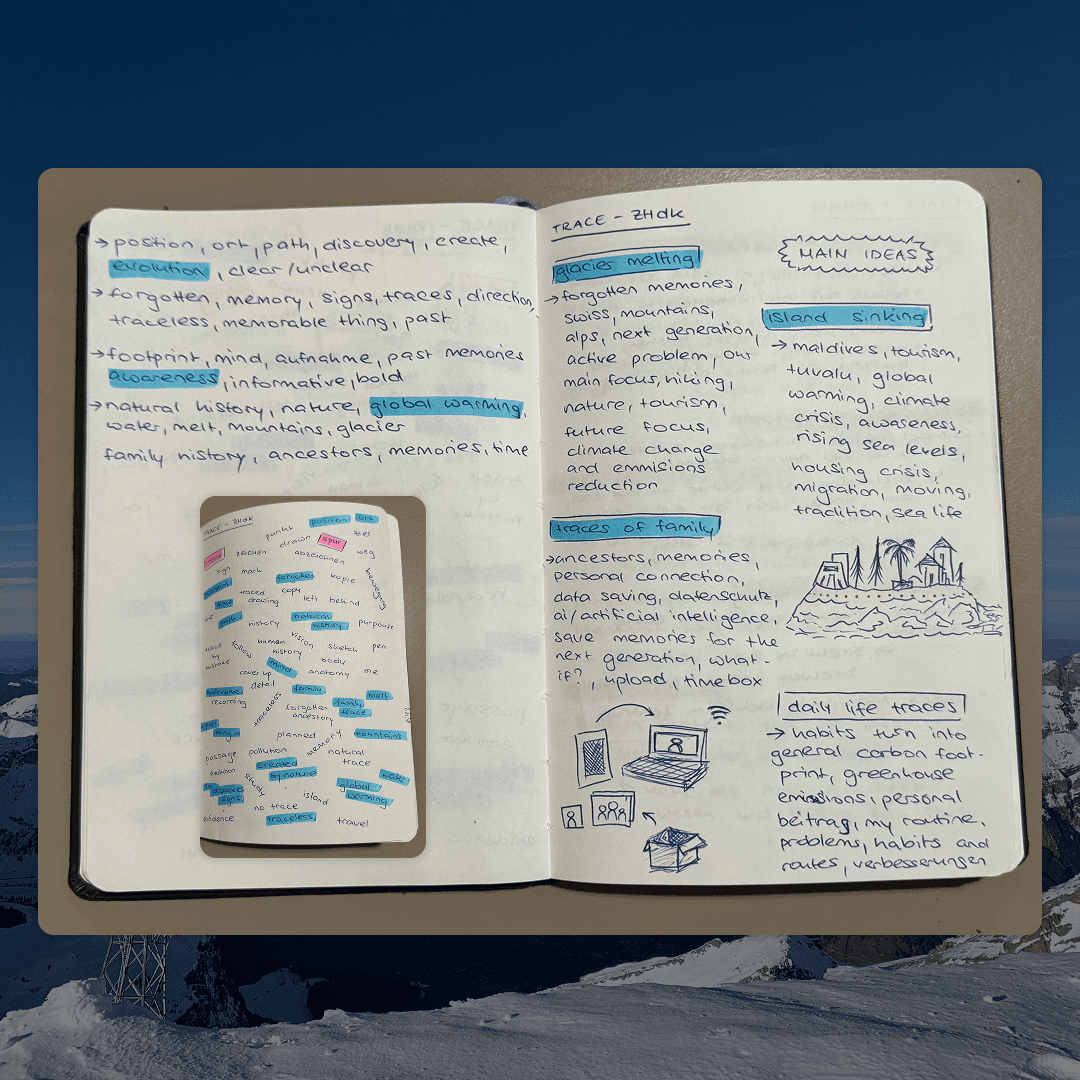 → position, ort, path, discovery, create,
evolution, clear/unclear
→ forgotten, memory, signs, traces, direction,
traceless, memorable thing, past
→ footprint, mind, aufnahme, past memories
awareness, informative, bold
→ natural history, nature, global warming,
water, melt, mountains, glacier
family history, ancestors, memories, time
TRACE - ZHdK
punkt position ort
drawn spur ziel
zeichen abzeichnen weg
sign mark forgotten kopie bewegung
traced copy
time drawing left behind
path history natural history purpouse
trace by mistake follow human history vision sketch pen
cover up mind body anatomy me
detail family melt
recording traceless forgotten ancestory family trace
things planned memory mountains
passage pollution natural trace
evolution created by nature study water
signs island global warming
no trace
evidence traceless, travel
TRACE - ZHdK
glacies melting
→ forgotten memories,
swiss, mountains,
alps, next generation,
active problem, our
main focus, hiking,
nature, tourism,
future focus,
climate change
and emmisions
reduction
traces of family
→ ancestors, memories,
personal connection,
data saving, datenschutz,
ai/artificial intelligence,
save memories for the
next generation, what-
if?, upload, timebox
MAIN IDEAS
island sinking
→ maldives, tourism,
tuvalu, global
warming, climate
crisis, awareness,
rising sea levels,
housing crisis,
migration, moving,
tradition, sea life
daily life traces
→ habits turn into
general carbon foot-
print, greenhouse
emissions, personal
beitrag, my routine,
problems, habits and
routes, verbesserungen